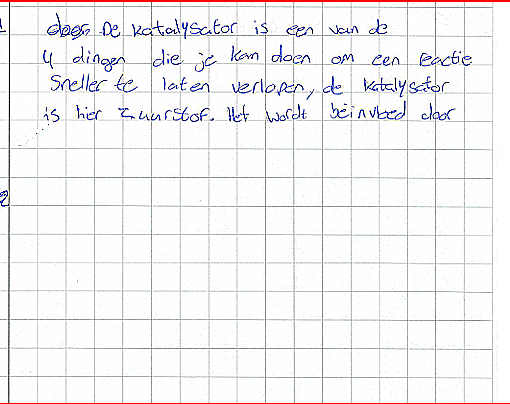 1 door De katalysator is een van de
4 dingen die je kan doen om een reactie
sneller te laten verlopen, de katalysator
is hier zuurstof. Het wordt beïnvloed door
2